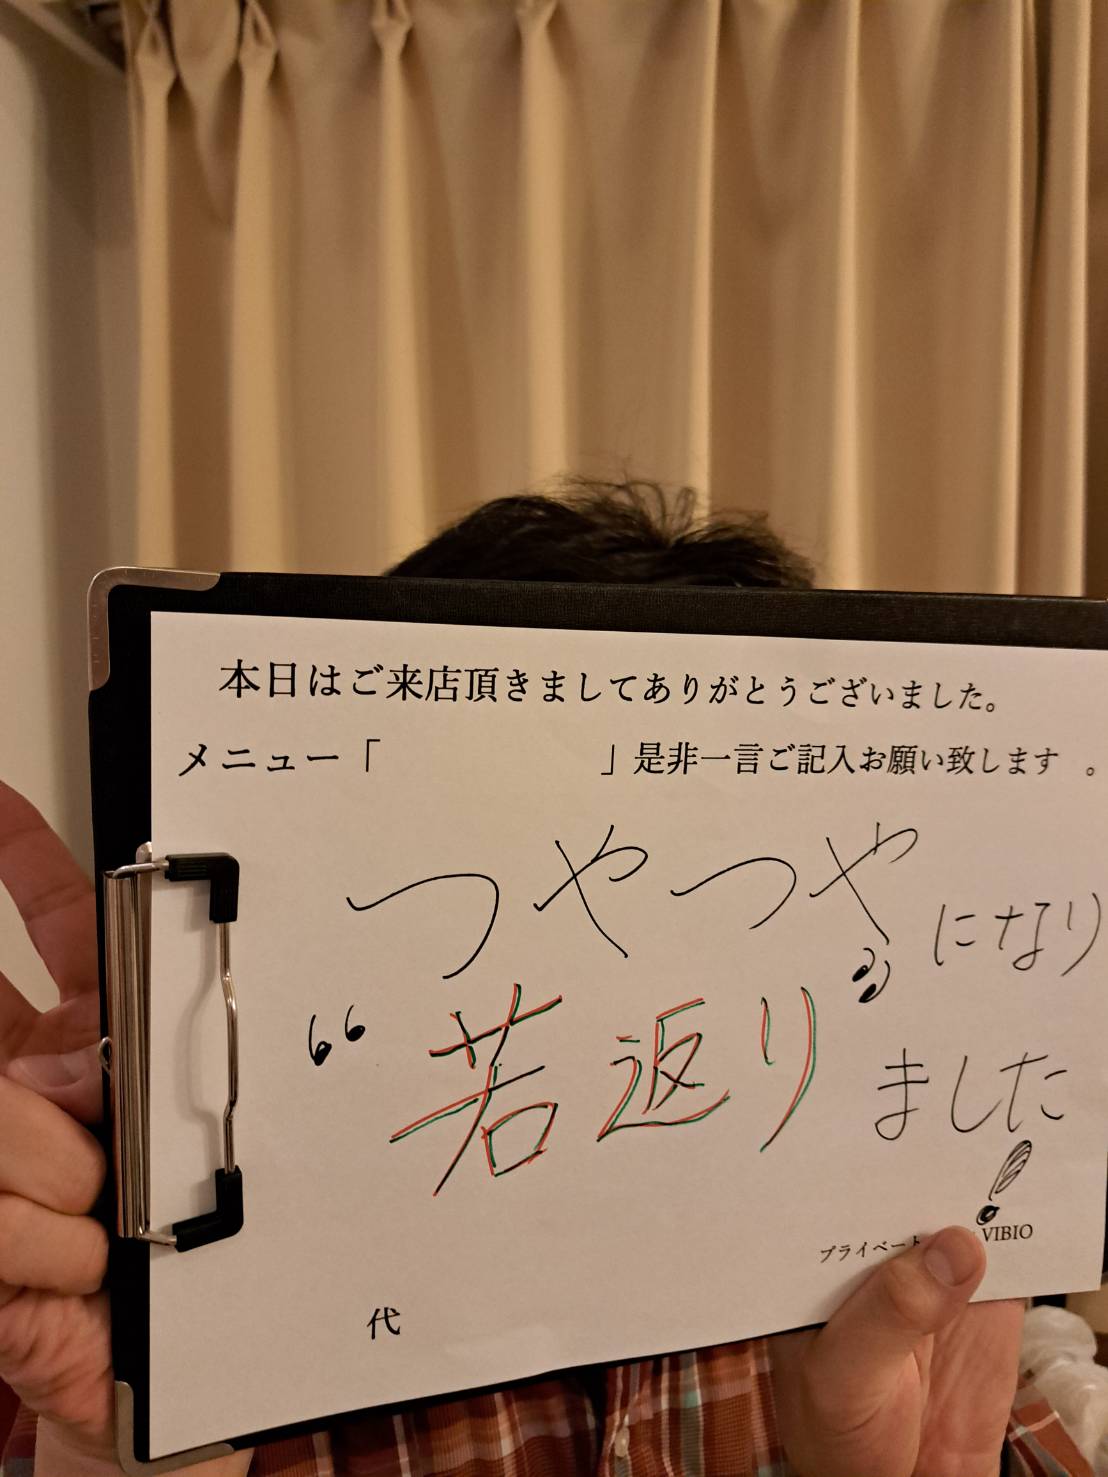 本日はご来店頂きましてありがとうございました。
メニュー「 」是非一言ご記入お願い致します 。
つやつやになり
“若返り”ました!
プライベート VIBIO
代